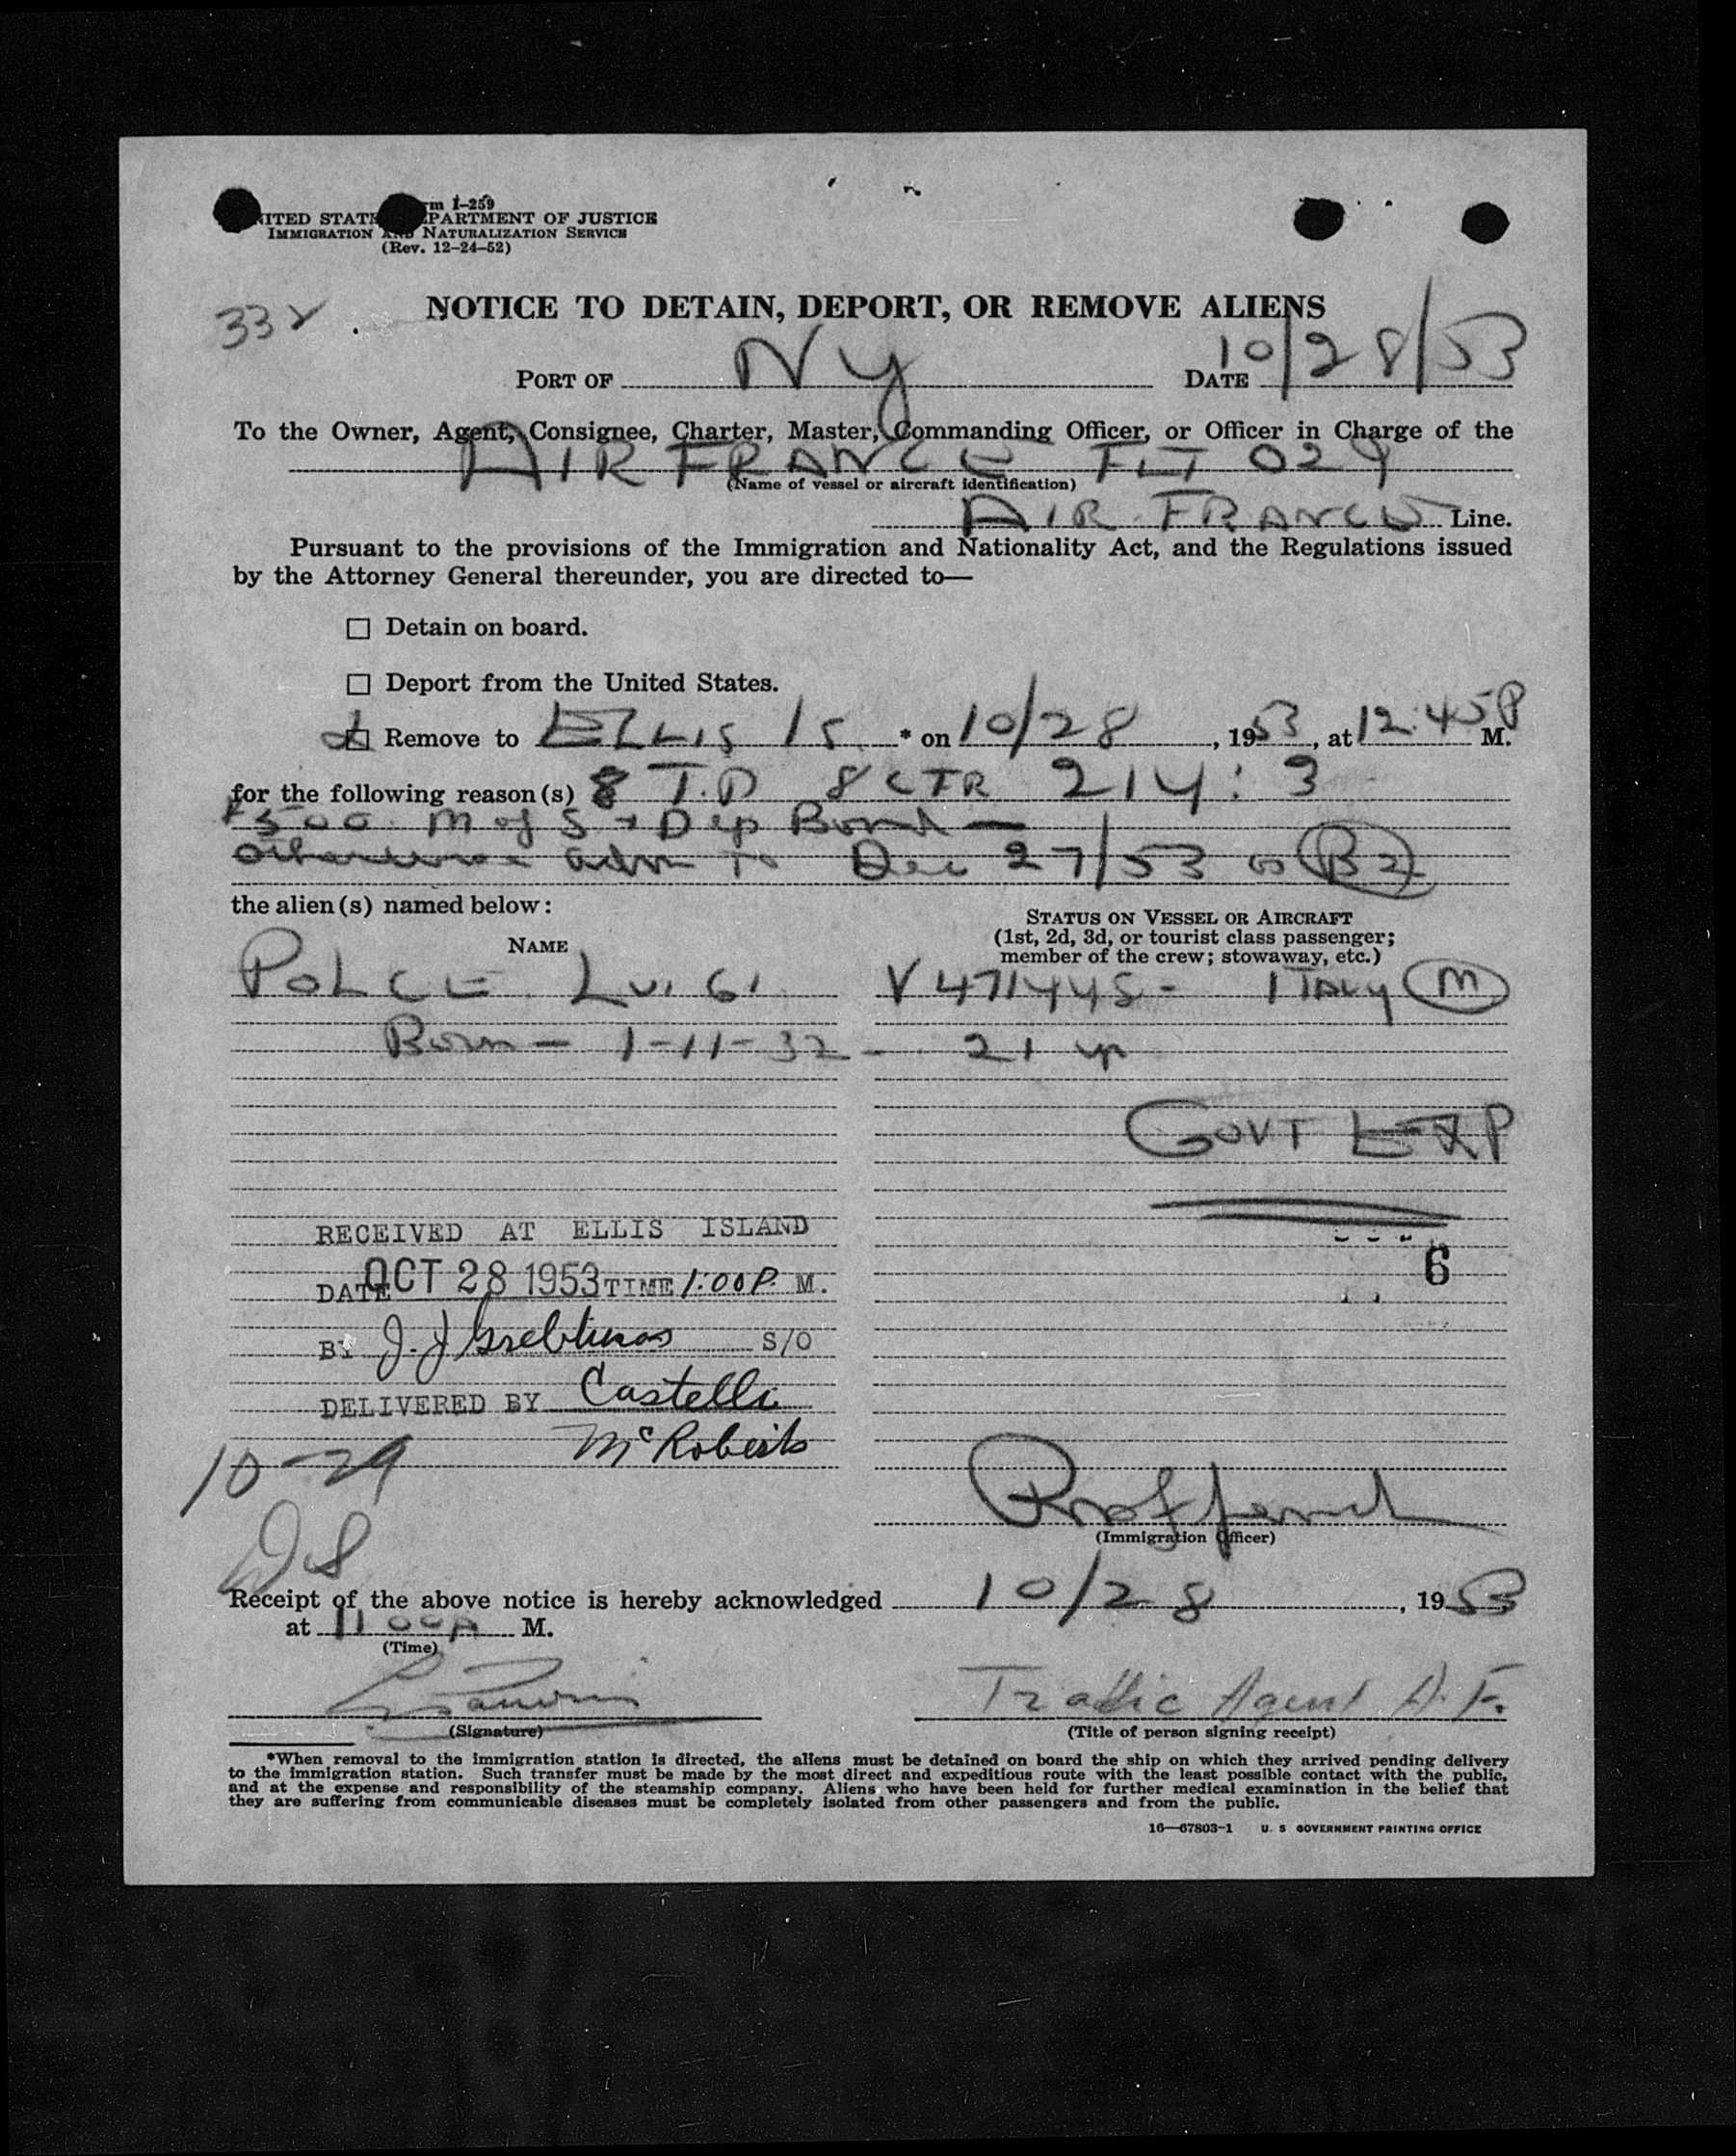 rm I-259
NITED STAT PARTMENT OF JUSTICE
IMMIGRATION AND NATURALIZATION SERVICE
(Rev. 12-24-52)
332
NOTICE TO DETAIN, DEPORT, OR REMOVE ALIENS
PORT OF NY DATE 10/28/53
To the Owner, Agent, Consignee, Charter, Master, Commanding Officer, or Officer in Charge of the
AIR FRANCE FLT 029
(Name of vessel or aircraft identification)
AIR FRANCE Line.
Pursuant to the provisions of the Immigration and Nationality Act, and the Regulations issued
by the Attorney General thereunder, you are directed to—
☐ Detain on board.
☐ Deport from the United States.
Remove to ELLIS IS. * on 10/28, 1953, at 12:45 P M.
for the following reason(s) 8 T.D 8 CFR 214:3
$500. M of S + Dep Bond —
Otherwise adm to Dec 27/53 as B2
the alien(s) named below:
STATUS ON VESSEL OR AIRCRAFT
NAME
(1st, 2d, 3d, or tourist class passenger;
member of the crew; stowaway, etc.)
POLCE LUIGI V471445 - ITALY M
Born - 1-11-32 - 21 yr
GOVT EXP
RECEIVED AT ELLIS ISLAND
6
DATE OCT 28 1953 TIME 1:00 P. M.
BY J. J. S/O
DELIVERED BY Castelli
McRoberts
10-29
(Immigration Officer)
Receipt of the above notice is hereby acknowledged 10/28, 1953
at 11 00A M.
(Time)
Traffic Agent A.F.
(Signature) (Title of person signing receipt)
*When removal to the immigration station is directed, the aliens must be detained on board the ship on which they arrived pending delivery
to the immigration station. Such transfer must be made by the most direct and expeditious route with the least possible contact with the public,
and at the expense and responsibility of the steamship company. Aliens who have been held for further medical examination in the belief that
they are suffering from communicable diseases must be completely isolated from other passengers and from the public.
16—67803-1 U. S GOVERNMENT PRINTING OFFICE